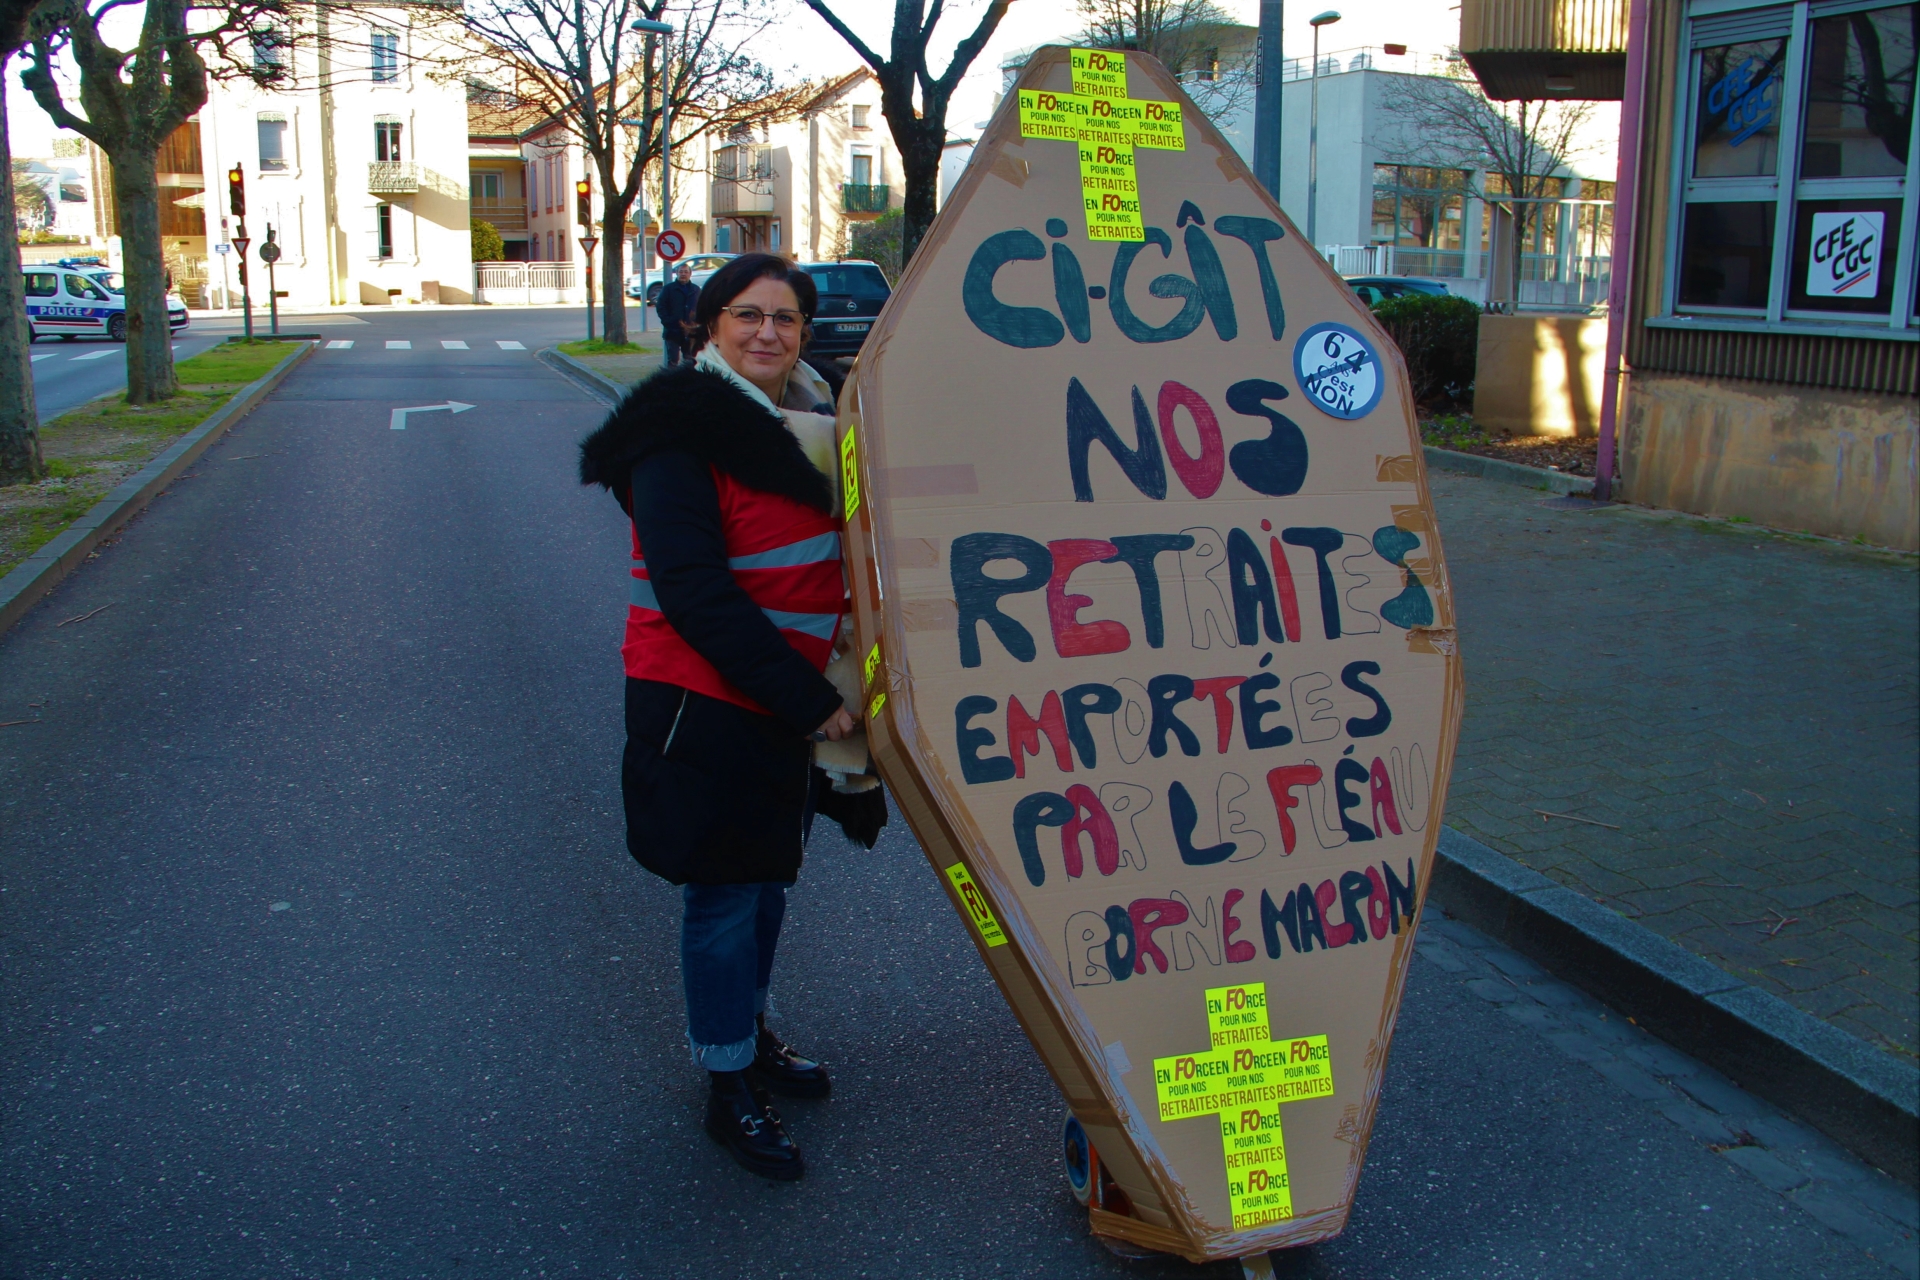 EN FORCE
POUR NOS
RETRAITES
EN FORCE EN FORCE EN FORCE
POUR NOS POUR NOS POUR NOS
RETRAITES RETRAITES RETRAITES
EN FORCE
POUR NOS
RETRAITES
EN FORCE
POUR NOS
RETRAITES
CI-GÎT
NOS
RETRAITES
EMPORTÉES
PAR LE FLÉAU
BORNE MACRON
EN FORCE
POUR NOS
RETRAITES
EN FORCE EN FORCE EN FORCE
POUR NOS POUR NOS POUR NOS
RETRAITES RETRAITES RETRAITES
EN FORCE
POUR NOS
RETRAITES
EN FORCE
POUR NOS
RETRAITES
64
est
NON
FO
Avec
FO
POLICE
CFE
CGC
CFE
CGC